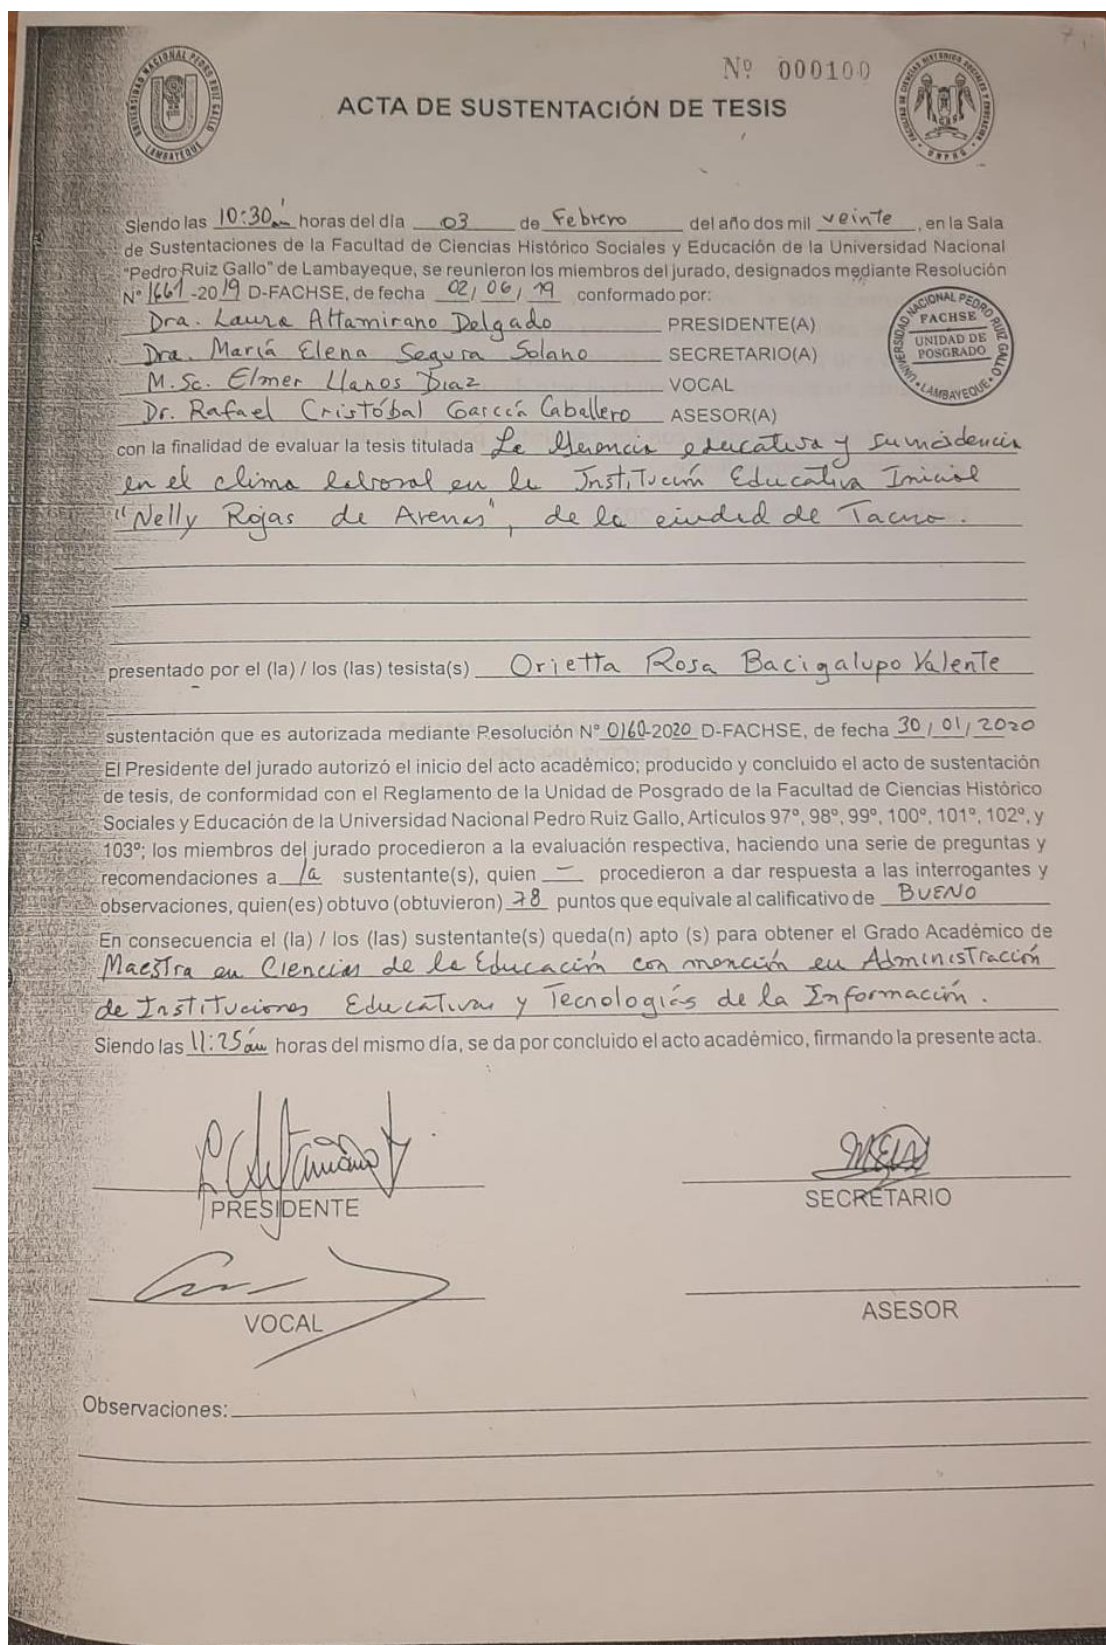 Nº 000100
UNIVERSIDAD NACIONAL PEDRO RUIZ GALLO
LAMBAYEQUE
ACTA DE SUSTENTACIÓN DE TESIS
Siendo las 10:30 horas del día 03 de Febrero del año dos mil veinte, en la Sala
de Sustentaciones de la Facultad de Ciencias Histórico Sociales y Educación de la Universidad Nacional
"Pedro Ruiz Gallo" de Lambayeque, se reunieron los miembros del jurado, designados mediante Resolución
Nº 1661-2019 D-FACHSE, de fecha 02/06/19 conformado por:
Dra. Laura Altamirano Delgado PRESIDENTE(A)
Dra. María Elena Segura Solano SECRETARIO(A)
M.Sc. Elmer Llanos Díaz VOCAL
Dr. Rafael Cristóbal García Caballero ASESOR(A)
UNIVERSIDAD NACIONAL PEDRO RUIZ GALLO
FACHSE
UNIDAD DE
POSGRADO
LAMBAYEQUE
con la finalidad de evaluar la tesis titulada La Gerencia educativa y su incidencia
en el clima laboral en la Institución Educativa Inicial
"Nelly Rojas de Arenas", de la ciudad de Tacna.
presentado por el (la) / los (las) tesista(s) Orietta Rosa Bacigalupo Valente
sustentación que es autorizada mediante Resolución Nº 0160-2020 D-FACHSE, de fecha 30/01/2020
El Presidente del jurado autorizó el inicio del acto académico; producido y concluido el acto de sustentación
de tesis, de conformidad con el Reglamento de la Unidad de Posgrado de la Facultad de Ciencias Histórico
Sociales y Educación de la Universidad Nacional Pedro Ruiz Gallo, Artículos 97º, 98º, 99º, 100º, 101º, 102º, y
103º; los miembros del jurado procedieron a la evaluación respectiva, haciendo una serie de preguntas y
recomendaciones a la sustentante(s), quien — procedieron a dar respuesta a las interrogantes y
observaciones, quien(es) obtuvo (obtuvieron) 78 puntos que equivale al calificativo de BUENO
En consecuencia el (la) / los (las) sustentante(s) queda(n) apto (s) para obtener el Grado Académico de
Maestra en Ciencias de la Educación con mención en Administración
de Instituciones Educativas y Tecnologías de la Información.
Siendo las 11:25 am horas del mismo día, se da por concluido el acto académico, firmando la presente acta.
PRESIDENTE
SECRETARIO
VOCAL
ASESOR
Observaciones: